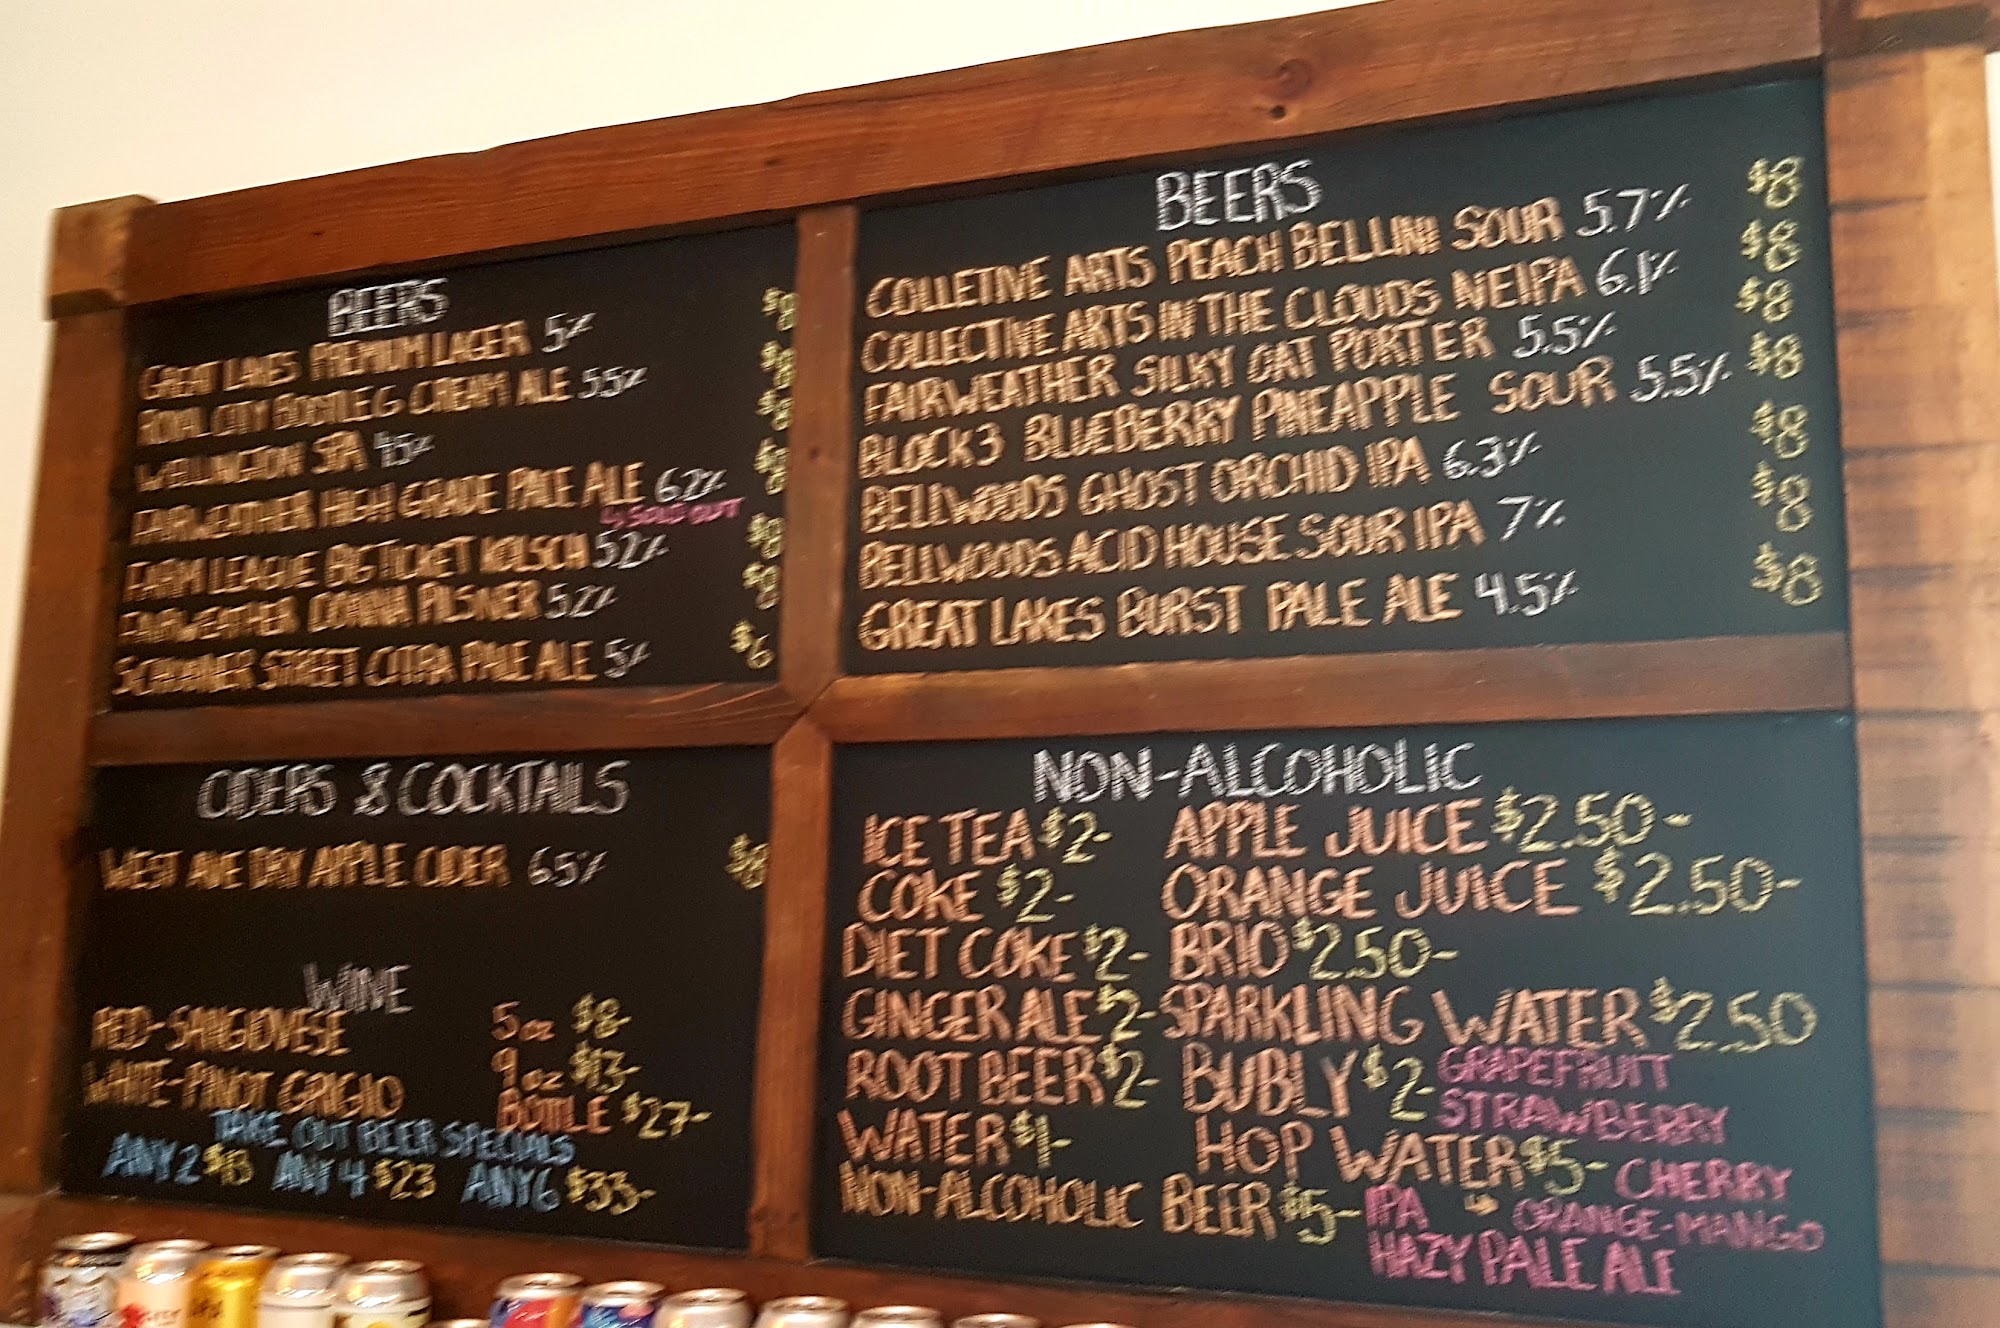 BEERS
GREAT LAKES PREMIUM LAGER 5% $8
ROYAL CITY BOOTLEG CREAM ALE 5.5% $8
WELLINGTON SPA 4.5% $8
FAIRWEATHER HIGH GRADE PALE ALE 6.2% $8
↳ SOLD OUT
FARM LEAGUE BIG TICKET KOLSCH 5.2% $8
FAIRWEATHER PILSNER 5.2% $8
STREET CITRA PALE ALE 5% $6
BEERS
COLLETIVE ARTS PEACH BELLINI SOUR 5.7% $8
COLLECTIVE ARTS IN THE CLOUDS NEIPA 6.1% $8
FAIRWEATHER SILKY OAT PORTER 5.5% $8
BLOCK 3 BLUEBERRY PINEAPPLE SOUR 5.5% $8
BELLWOODS GHOST ORCHID IPA 6.3% $8
BELLWOODS ACID HOUSE SOUR IPA 7% $8
GREAT LAKES BURST PALE ALE 4.5% $8
CIDERS & COCKTAILS
WEST AVE DRY APPLE CIDER 6.5% $8
WINE
RED-SANGIOVESE 5oz $8-
WHITE-PINOT GRIGIO 9oz $13-
BOTTLE $27-
TAKE OUT BEER SPECIALS
ANY 2 $13 ANY 4 $23 ANY 6 $33-
NON-ALCOHOLIC
ICE TEA $2- APPLE JUICE $2.50-
COKE $2- ORANGE JUICE $2.50-
DIET COKE $2- BRIO $2.50-
GINGER ALE $2- SPARKLING WATER $2.50
ROOT BEER $2- BUBLY $2- GRAPEFRUIT
STRAWBERRY
CHERRY
ORANGE-MANGO
WATER $1- HOP WATER $5-
NON-ALCOHOLIC BEER $5- IPA
HAZY PALE ALE